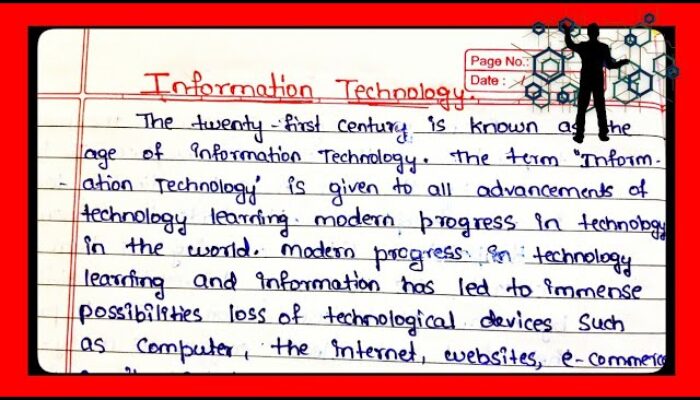 Page No.:
Date :
Information Technology.
The twenty-first century is known as the
age of information Technology. The term "Inform-
ation Technology" is given to all advancements of
technology learning. modern progress in technology
in the world. modern progress in technology
learning and information has led to immense
possibilities loss of technological devices such
as computer, the internet, websites, e-commerce